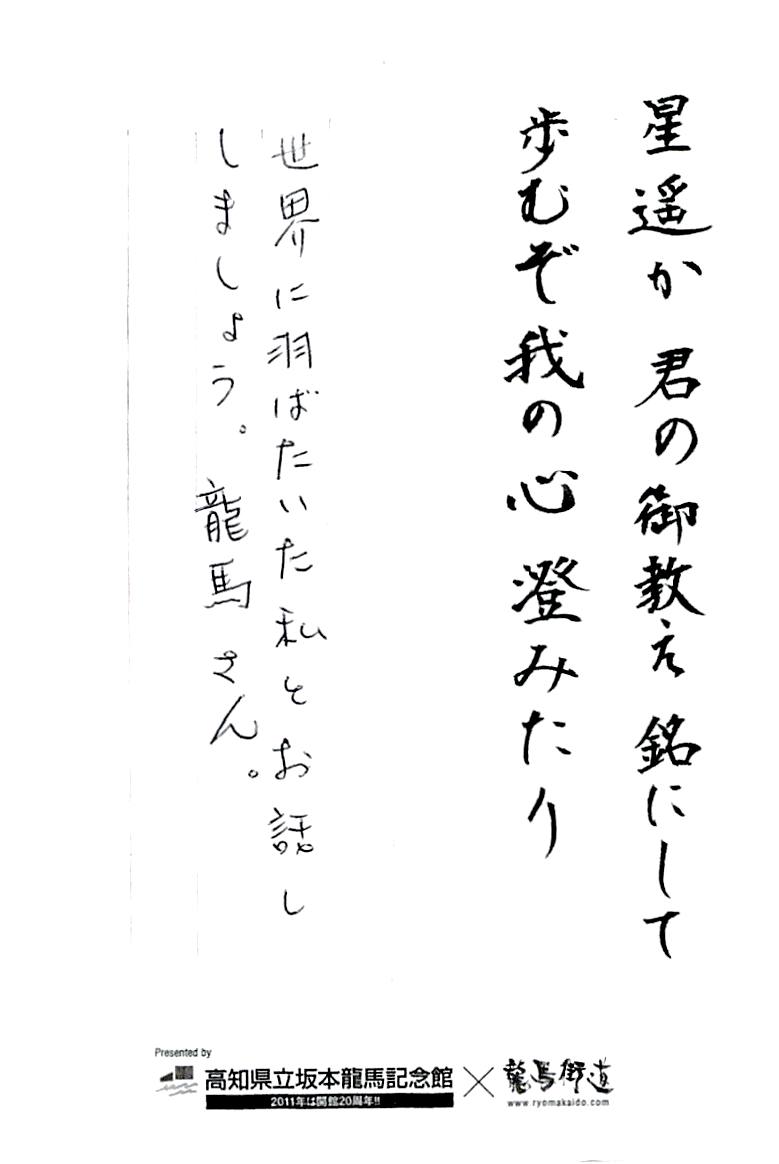 星遥か 君の御教え 銘にして
歩むぞ我の心 澄みたり
世界に羽ばたいた私とお話し
しましょう。龍馬さん。
Presented by
高知県立坂本龍馬記念館×龍馬街道
2011年は開館20周年!!
www.ryomakaido.com